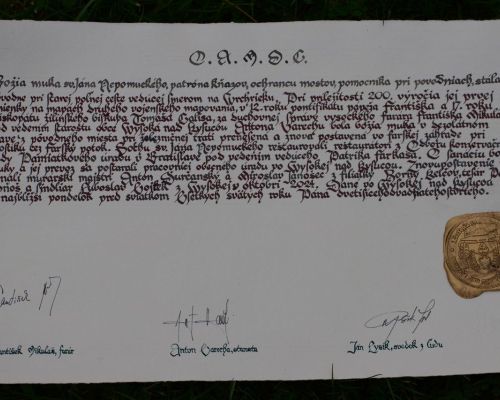 O. A. M. D. G.
Božia muka sv. Jána Nepomuckého, patróna kňazov, ochrancu mostov, pomocníka pri povodniach, stála
pôvodne pri starej poľnej ceste vedúcej smerom na Vrchrieku. Pri príležitosti 200. výročia jej prvej
zmienky na mapách druhého vojenského mapovania, v 12. roku pontifikátu pápeža Františka a 17. roku
episkopátu žilinského biskupa Tomáša Galisa, za duchovnej správy vysockého farára Františka Mikuláša
pod vedením starostu obce Vysoká nad Kysucou Antona Varechu bola božia muka v dezolátnom
stave z pôvodného miesta pri ceste na starú tehelňu prenesená a na novo postavená vo farskej záhrade pri
farskom potoku. Sochu sv. Jána Nepomuckého reštaurovali reštaurátori z Odboru konzervačnej
Pamiatkového úradu v Bratislave pod vedením vedúceho Patrika Farkaša. O sanáciu
muky a jej prevoz sa postarali pracovníci obecného úradu vo Vysokej nad Kysucou. O postavenie
murárski majstri Anton Surčanský a Miroslav Jánošec z filiálky Horný Kelčov, tesár
a šindliar Ľuboslav z Vysokej v októbri 2024. Dané vo Vysokej nad Kysucou
najbližší pondelok pred sviatkom Všetkých svätých roku Pána dvetisícehodvadsiatehoštvrtého.
František Mikuláš, farár
Anton Varecha, starosta
Ján svedok z ľudu